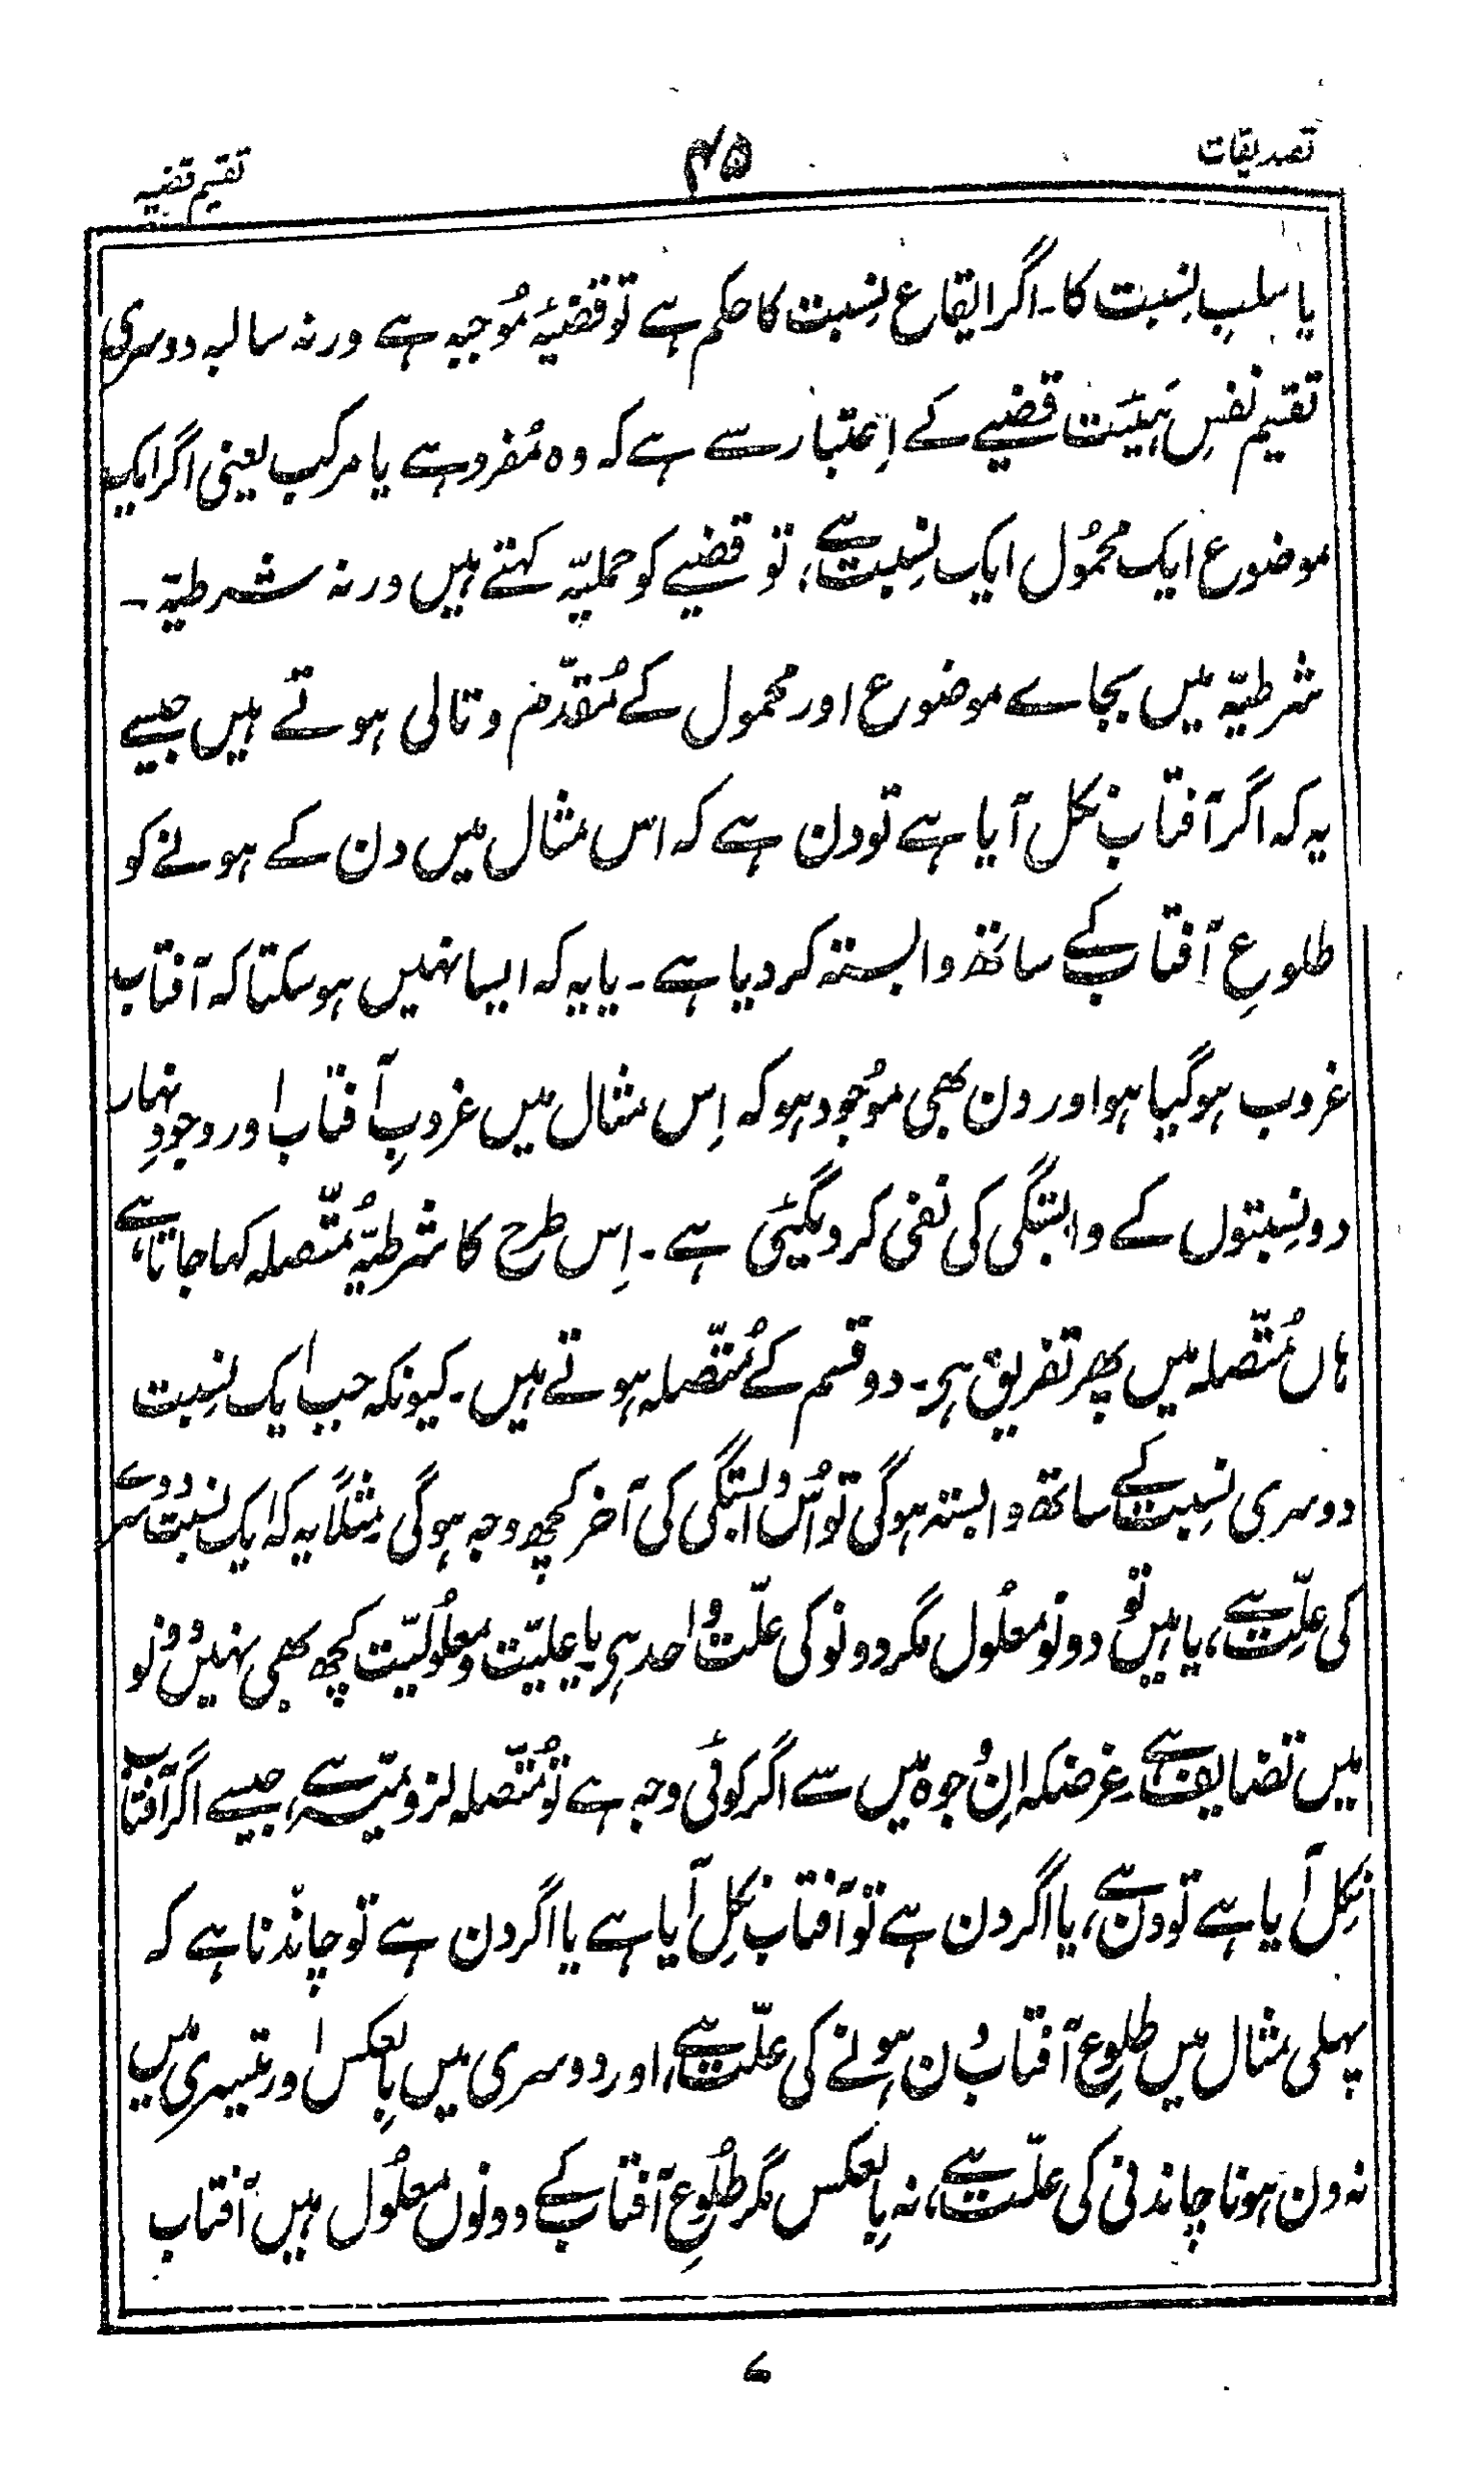 تصدیقات
۴۵
تقسیم قضیہ
یا سلبِ نِسبت کا۔ اگر ایقاع نِسبت کا حکم ہے تو قضیّہ مُوجبہ ہے ورنہ سالبہ دوسری
تقسیم نفسِ ہَیئَت قضیے کے اِعتبار سے ہے کہ وہ مُفرد ہے یا مرکب یعنی اگر ایک
موضوع ایک محمُول ایک نِسبت ہے، تو قضیے کو حملیّہ کہتے ہیں ورنہ شرطیّہ۔
شرطیّہ میں بجاے موضوع اور محمول کے مُقدّم و تالی ہوتے ہیں جیسے
یہ کہ اگر آفتاب نکل آیا ہے تو دن ہے کہ اس مثال میں دن کے ہونے کو
طلوعِ آفتاب کے ساتھ وابستہ کر دیا ہے۔ یا یہ کہ ایسا نہیں ہو سکتا کہ آفتاب
غروب ہو گیا ہو اور دن بھی موُجود ہو کہ اِس مثال میں غروبِ آفتاب اور وجودِ نہار
دو نِسبتوں کے وابستگی کی نفی کر دیگئی ہے۔ اِس طرح کا شرطیّہ مُتّصلہ کہا جاتا ہے،
ہاں مُتّصلہ میں پھر تفریق ہی۔ دو قسم کے مُتّصلہ ہوتے ہیں۔ کیونکہ جب ایک نِسبت
دوسری نِسبت کے ساتھ وابستہ ہوگی تو اُس وابستگی کی آخر کچھ وجہ ہوگی مثلًا یہ کہ ایک نسبت دوسرے
کی علّت ہے، یا ہیں تو دونو معلُول مگر دونو کی علّت واحد ہی یا علیّت و معلُولیّت کچھ بھی نہیں دونو
میں تضایف ہے غرضکہ اِن وجوہ میں سے اگر کوئی وجہ ہے تو مُتّصلہ لزومیّہ ہے، جیسے اگر آفتاب
نکِل آیا ہے تو دن ہے، یا اگر دن ہے تو آفتاب نکِل آیا ہے یا اگر دن ہے تو چاندنا ہے کہ
پہلی مثال میں طلوعِ آفتاب دن ہونے کی علّت ہے، اور دوسری میں بِالعکس اور تیسری میں
نہ دن ہونا چاندنی کی علّت ہے، نہ بِالعکس مگر طلُوعِ آفتاب کے دونوں معلُول ہیں آفتاب